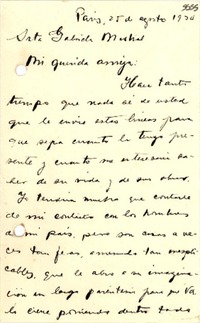 París, 25 de agosto 1930
Srta Gabriela Mistral
Mi querida amiga:
Hace tanto
tiempo que nada sé de usted
que le envío estas líneas para
que sepa cuanto la tengo pre-
sente y cuanto me interesa sa-
ber de su vida y de sus obras.
Yo tendría mucho que contarle
de mi contacto con los hombres
de mi país, pero son cosas a ve-
ces tan feas, enormes, tan inexpli-
cables, que le abro a su imagina-
ción un largo paréntesis para que Vd.
la vaya poniendo dentro todo